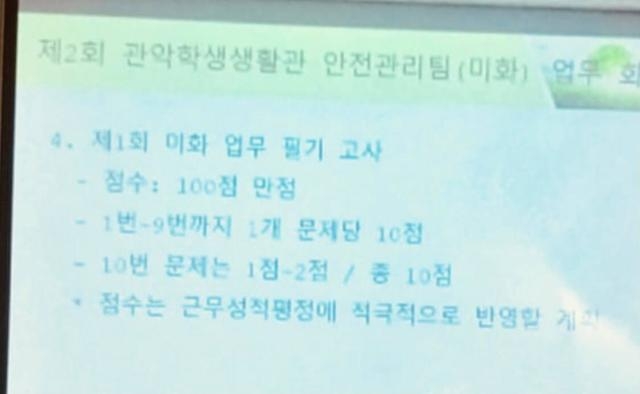 제2회 관악학생생활관 안전관리팀(미화) 업무 회
4. 제1회 미화 업무 필기 고사
- 점수: 100점 만점
- 1번-9번까지 1개 문제당 10점
- 10번 문제는 1점-2점 / 총 10점
* 점수는 근무성적평정에 적극적으로 반영할 계획